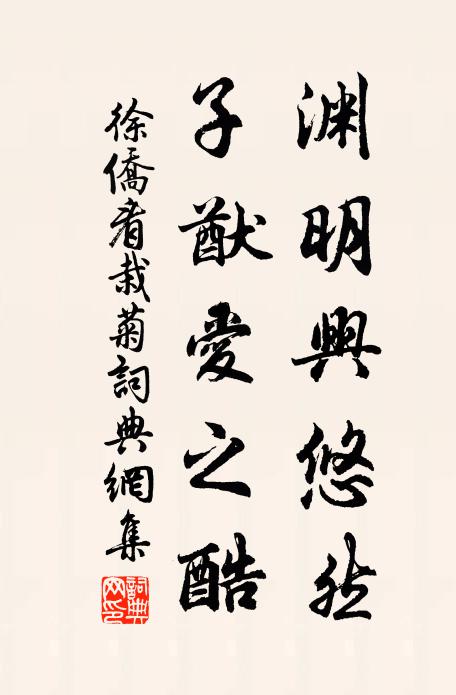 渊明興悠然
子猷愛之酷
徐僑看栽菊詞典網集
詞典網印